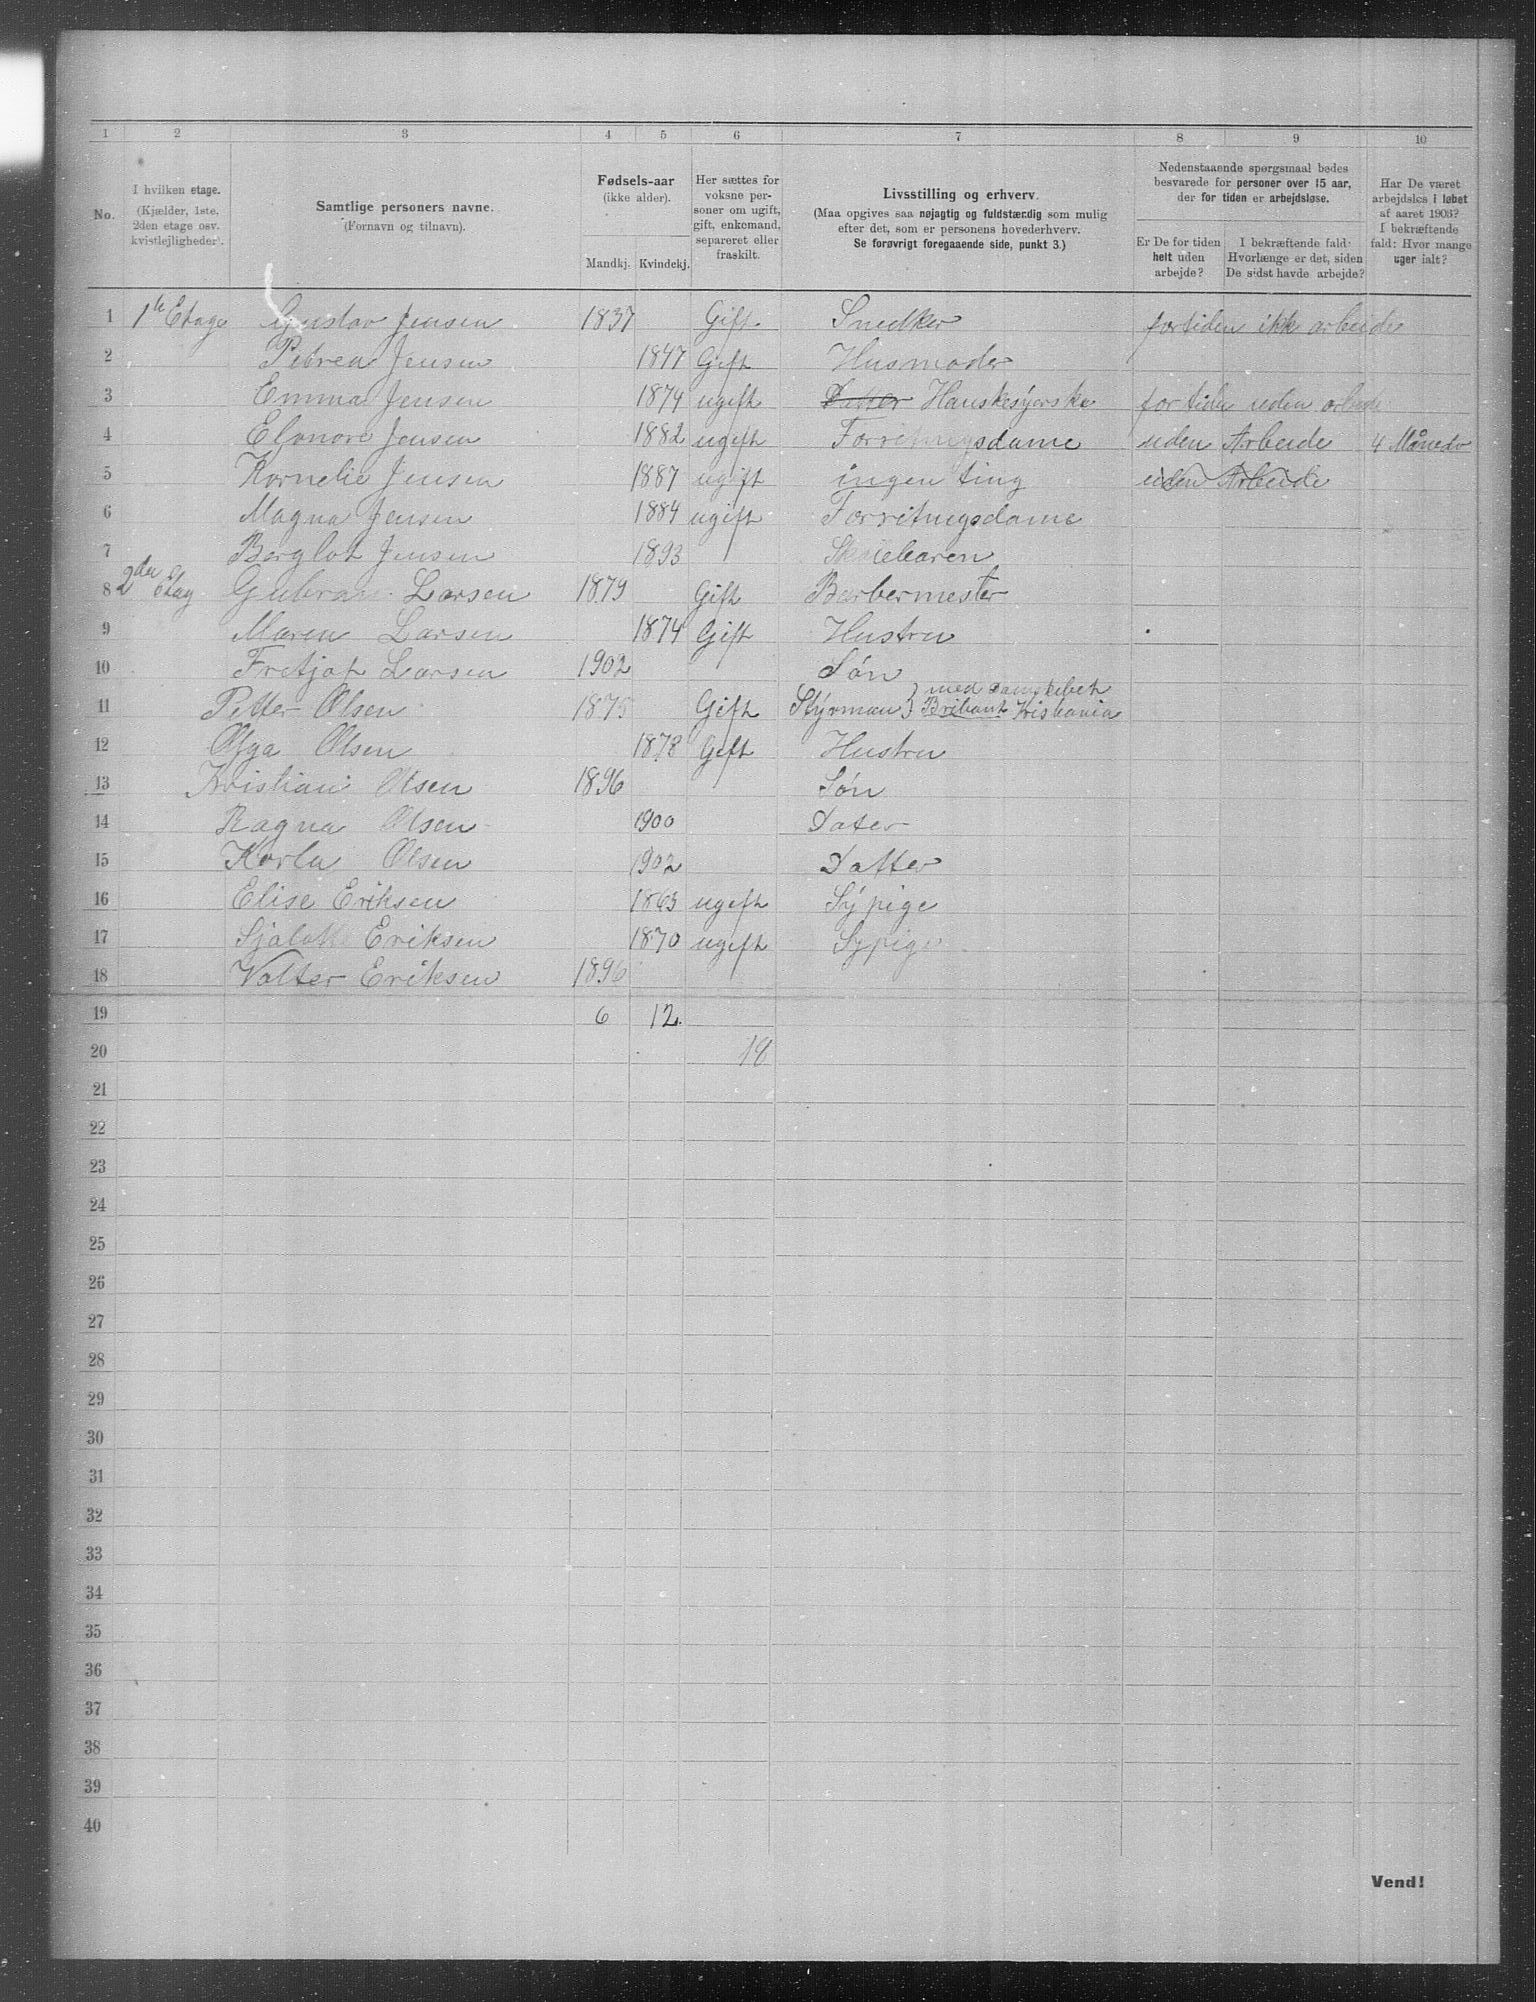 1 2 3 4 5 6 7 8 9 10
No.
I hvilken etage.
(Kjælder, 1ste,
2den etage osv.
kvistlejligheder).
Samtlige personers navne.
(Fornavn og tilnavn).
Fødsels-aar
(ikke alder).
Mandkj. Kvindekj.
Her sættes for
voksne per-
soner om ugift,
gift, enkemand,
separeret eller
fraskilt.
Livsstilling og erhverv.
(Maa opgives saa nøjagtig og fuldstændig som mulig
efter det, som er personens hovederhverv.
Se forøvrigt foregaaende side, punkt 3.)
Nedenstaaende spørgsmaal bedes
besvarede for personer over 15 aar,
der for tiden er arbejdsløse.
Er De for tiden
helt uden
arbejde?
I bekræftende fald:
Hvorlænge er det, siden
De sidst havde arbejde?
Har De været
arbejdsløs i løbet
af aaret 1903?
I bekræftende
fald: Hvor mange
uger ialt?
1 1te Etage Gustav Jensen 1837 Gift Snedker for tiden ikk arbeide
2 Petrea Jensen 1847 Gift Husmoder
3 Emma Jensen 1874 ugift Datter Hanskesyerske for tiden uden arbeide
4 Elonore Jensen 1882 ugift Forretnngsdame uden Arbeide 4 Måneder
5 Kornelie Jensen 1887 ugift ingen ting uden Arbeide
6 Magna Jensen 1884 ugift Forretnngsdame
7 Berglot Jensen 1893
8 2den Etag Gubran Larsen 1879 Gift Barbermester
9 Maren Larsen 1874 Gift Hustru
10 Fretjof Larsen 1902 Søn
11 Petter Olsen 1875 Gift Styrman } med Dampskibet
Briliant Kristiania
12 Olga Olsen 1878 Gift Hustru
13 Kristian Olsen 1896 Søn
14 Ragna Olsen 1900 Dater
15 Karla Olsen 1902 Datter
16 Elise Eriksen 1863 ugeft Sypige
17 Sjalotte Eriksen 1870 ugeft Sypige
18 Valter Eriksen 1896
19 6 12.
20 18
21
22
23
24
25
26
27
28
29
30
31
32
33
34
35
36
37
38
39
40
Vend!